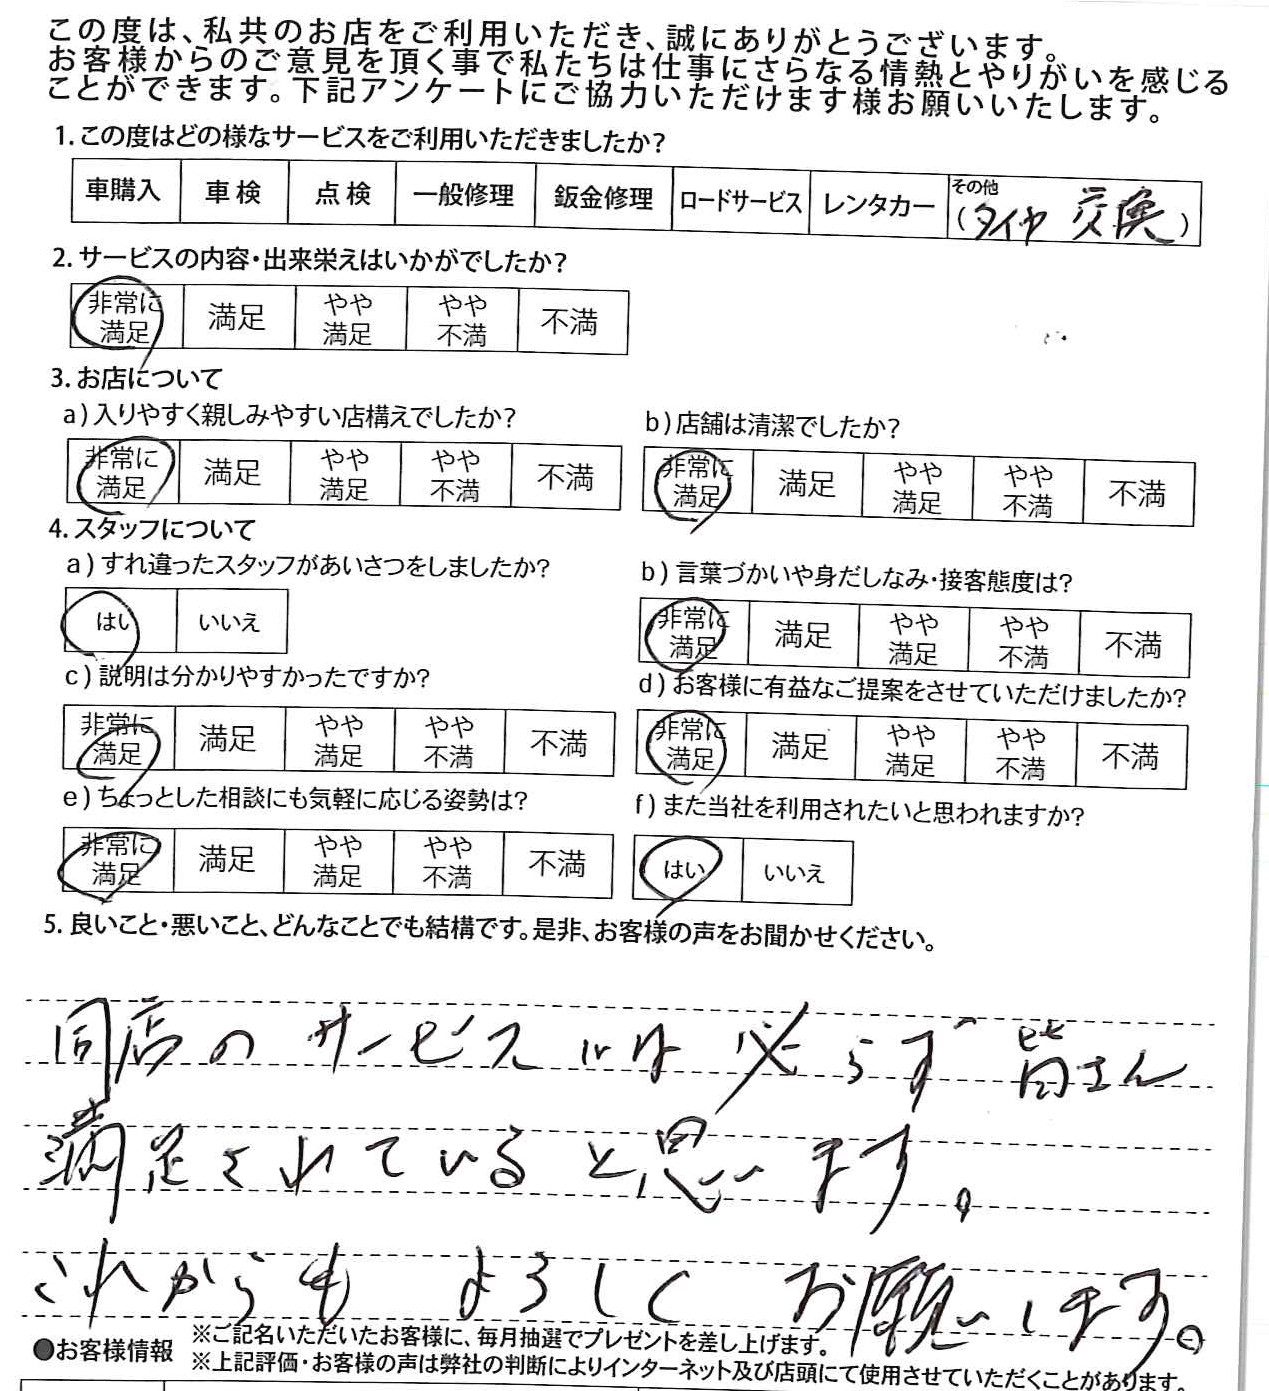 この度は、私共のお店をご利用いただき、誠にありがとうございます。
お客様からのご意見を頂く事で私たちは仕事にさらなる情熱とやりがいを感じる
ことができます。下記アンケートにご協力いただけます様お願いいたします。
1. この度はどの様なサービスをご利用いただきましたか?
車購入 車検 点検 一般修理 鈑金修理 ロードサービス レンタカー その他
(タイヤ 交換)
2. サービスの内容・出来栄えはいかがでしたか?
非常に満足 満足 やや満足 やや不満 不満
3. お店について
a) 入りやすく親しみやすい店構えでしたか?
非常に満足 満足 やや満足 やや不満 不満
b) 店舗は清潔でしたか?
非常に満足 満足 やや満足 やや不満 不満
4. スタッフについて
a) すれ違ったスタッフがあいさつをしましたか?
はい いいえ
b) 言葉づかいや身だしなみ・接客態度は?
非常に満足 満足 やや満足 やや不満 不満
c) 説明は分かりやすかったですか?
非常に満足 満足 やや満足 やや不満 不満
d) お客様に有益なご提案をさせていただけましたか?
非常に満足 満足 やや満足 やや不満 不満
e) ちょっとした相談にも気軽に応じる姿勢は?
非常に満足 満足 やや満足 やや不満 不満
f) また当社を利用されたいと思われますか?
はい いいえ
5. 良いこと・悪いこと、どんなことでも結構です。是非、お客様の声をお聞かせください。
同店のサービスには必らず皆さん
満足されていると思います。
これからも よろしく お願いします。
●お客様情報 ※ご記名いただいたお客様に、毎月抽選でプレゼントを差し上げます。
※上記評価・お客様の声は弊社の判断によりインターネット及び店頭にて使用させていただくことがあります。